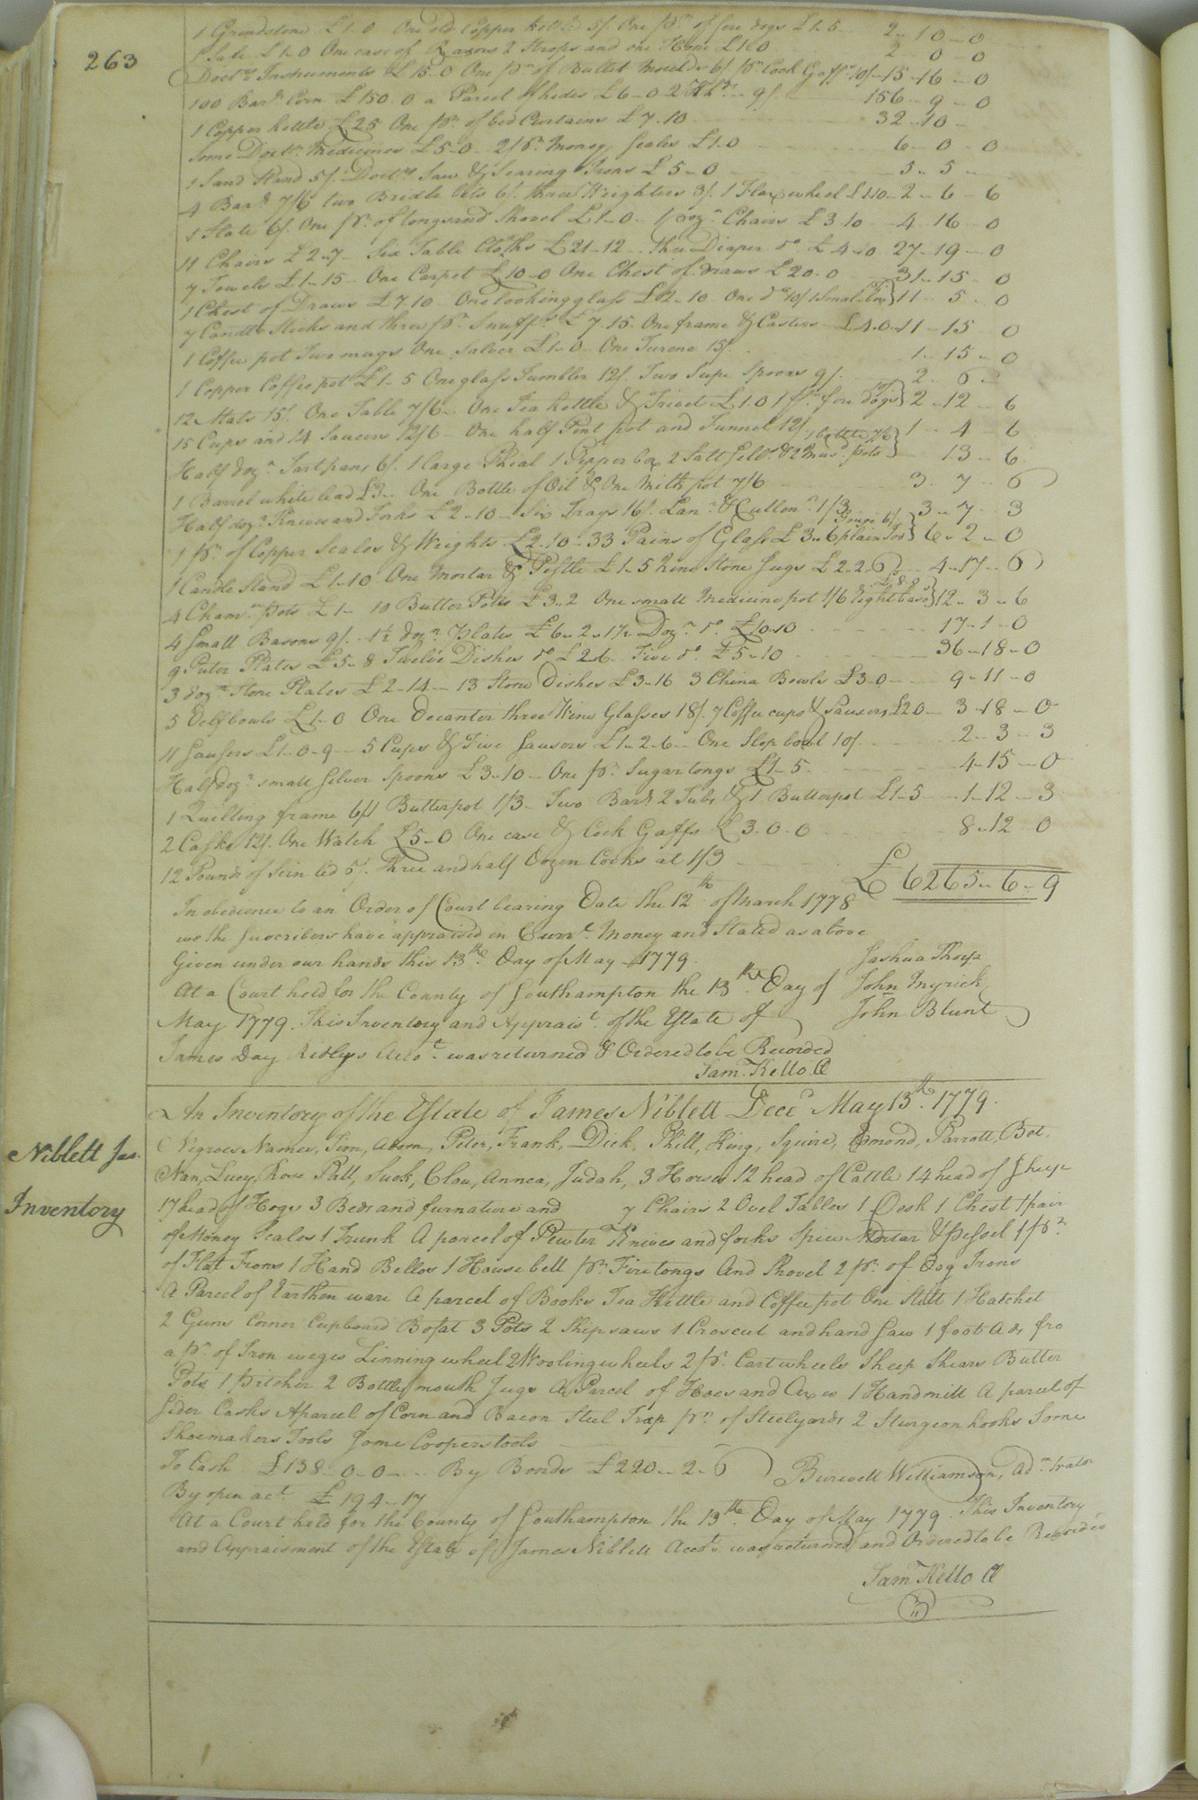 263
1 Grindstone £1-0 One old Copper kettle 5/. One pr. of fire dogs £1-5 2-10-0
1 Sale £1-0 One case of Razors 2 Strops and one Hone £1-0 2-0-0
Doctrs Instruments £15-0 One pr. of Bullet Moulds 6/. pr. Cock Gaffs 10/ 15-16-0
100 Barls Corn £150.0 a Parcel of hides £6-0 9/. 156-9-0
1 Copper kettle £25 One pr. of bed Curtains £7-10 32-10-
Some Doctrs Medicines £5-0 2 pr. Money Scales £1-0 6-0-0
1 Sand Stand 5/. Doctrs Saw & Searing Irons £5-0 5-5-
4 Barls 7/6 two Bridle bits 6/. three Weighters 3/. 1 Flax wheel £1.10 2-6-6
1 Slate 6/. One pr. of tongs and Shovel £1-0 Chairs £3-10 4-16-0
11 Chairs £2-7- Six Table Cloths £21-12 three Diaper do. £4-0 27-19-0
7 Towels £1-15- One Carpet £10-0 One Chest of draws £20-0 31-15-0
1 Chest of Draws £7.10 One looking glass £2-10 One do. 10/ 1 Small do. 11-5-0
7 Candle Sticks and three pr. Snuffrs. £7.15 One frame & Castors £4.0 11-15-0
1 Coffee pot Two mugs One Salver £1-0 One Tureen 15/. 1-15-0
1 Copper Coffee pot £1-5 One glass Tumbler 12/. Two Supe Spoons 9/. 2-6-
12 Mats 15/. One Table 7/6 One Tea kettle & Trivet £1.0 1 pr. fire dogs 2-12-6
15 Cups and 14 Saucers 12/6 One half Pint pot and Funnel 12/ 1-4-6
Half dozn. Tart pans 6/. 1 large Phial 1 Pepper box 2 Salt Sells & 2 Musd. pots 1 bottle 7/6 13-6
1 Barrel white lead £3. One Bottle of Oil & One Milk pot 7/6 3-7-6
Half dozn. Knives and Forks £2-10 Six Trays 16/. 1/3 3-7-3
1 pr. of Copper Scales & Weights £2-10 33 Pains of Glass £3-6 6-2-0
1 Candle Stand £1-10 One Mortar & Pestle £1-5 Nine Stone Jugs £2-2-6 4-17-6
4 Chamr. Pots £1- 10 Butter Potts £3-2 One small Medicine pot 1/6 12-3-6
4 Small Basons 9/. 1½ dozn. Plates £6-2-1½ Dozn. do. £10-10 17-1-0
9 Puter Plates £5-8 Twelve Dishes do £26 Five do. £5-10 36-18-0
3 dozn Stone Plates £2-14 13 Stone Dishes £3-16 3 China Bowls £3-0 9-11-0
5 Delf bowls £1-0 One Decanter three Wine Glasses 18/. 7 Coffee cups & Sausers £2.0 3-18-0
11 Sausers £1-0-9 5 Cups & Five Sausers £1-2-6 One Slop bowl 10/. 2-3-3
Half dozn. small Silver Spoons £3-10 One pr. Sugar tongs £1-5. 4-15-0
1 Quilting frame 6/. 1 Butterpot 1/3 Two Barls 2 Tubs & 1 Butterpot £1-5 1-12-3
2 Casks 12/. One Watch £5-0 One case & Cock Gaffs £3.0.0 8-12-0
12 Pounds of 5/. Three and half Dozen Cocks at 1/3
£6265-6-9
In obedience to an Order of Court bearing Date the 12th of March 1778
we the Suscribers have appraised in Currt. Money and Stated as above
Given under our hands this 13th Day of May 1779.
Joshua Thorp
John Myrick
John Blunt
At a Court held for the County of Southampton the 13th. Day of
May 1779. This Inventory and Appraist. of the Estate of
James Day Ridleys Acco.t was returned & Ordered to be Recorded
Saml. Kello Cl
Niblett Jas.
Inventory
An Inventory of the Estate of James Niblett Decd. May 13th. 1779.
Negroes Names, Tom, Adom, Peter, Frank, Dick, Phill, King, Squire, Edmond, Parrott, Bob.
Nan, Lucy, Rose Patt, Suck, Cloa, Annea, Judah, 3 Horses 12 head of Cattle 14 head of Sheep
17 head of Hogs 3 Beds and furnature and 7 Chairs 2 Ovel Tables 1 Desk 1 Chest 1 pair
of Money Scales 1 Trunk A parcel of Pewter Knives and forks Spice Mortar & Pessel 1 pr.
of Flat Irons 1 Hand Bellos 1 House bell pr. Fire tongs And Shovel 2 pr. of Dog Irons
A Parcel of Earthen ware A parcel of Books Tea Kettle and Coffee pot One Still 1 Hatchet
2 Guns Corner Cupboard Bofat 3 Pots 2 Whip saws 1 Croscut and hand Saw 1 foot Adz fro
a pr. of Iron weges Linning wheel 2 Wooling wheels 2 pr. Cart wheels Sheep Shears Butter
Pots 1 Pitcher 2 Bottles mouth Jugs A Parcel of Hoes and Axes 1 Handmill A parcel of
Sider Casks A parcel of Corn and Bacon Steel Trap pr. of Steelyards 2 Sturgeon hooks Some
Shoemakers Tools Some Coopers tools
To Cash £138-0-0 By Bonds £220-2-6 Burwell Williamson, Admtrator
By open act. £194-17
At a Court held for the County of Southampton the 13th. Day of May 1779. This Inventory
and Appraisment of the Estate of James Niblett Decd. was returned and Ordered to be Recorded
Saml. Kello Cl